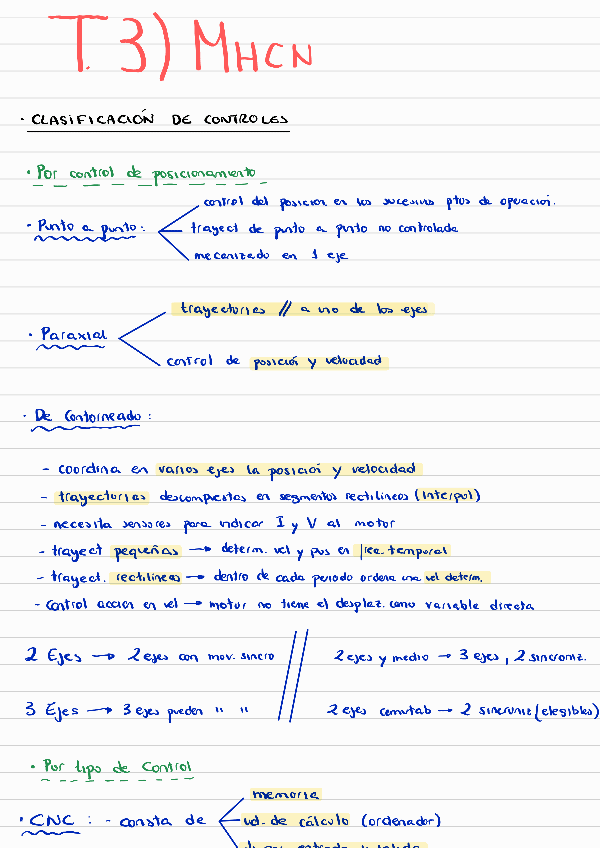 T.3) MHCN
· CLASIFICACIÓN DE CONTROLES
· Por control de posicionamiento
control del posicion en los sucesivos ptos de operación.
· Punto a punto: trayect de punto a punto no controlada
mecanizado en 1 eje
trayectorias // a uno de los ejes
· Paraxial
control de posición y velocidad
· De Contorneado:
- coordina en varios ejes la posición y velocidad
- trayectorias descompuestas en segmentos rectilíneos (Interpol)
- necesita sensores para indicar I y V al motor
- trayect pequeñas → determ. vel y pos en temporal
- trayect. rectilíneas → dentro de cada periodo ordena una vel determ.
- Control accion en vel → motor no tiene el desplaz. como variable directa
2 Ejes → 2 ejes con mov. sincro // 2 ejes y medio → 3 ejes, 2 sincroniz.
3 Ejes → 3 ejes pueden " " 2 ejes conmutab → 2 sincroniz (elegibles)
· Por tipo de Control
memoria
· CNC : - consta de ud. de cálculo (ordenador)